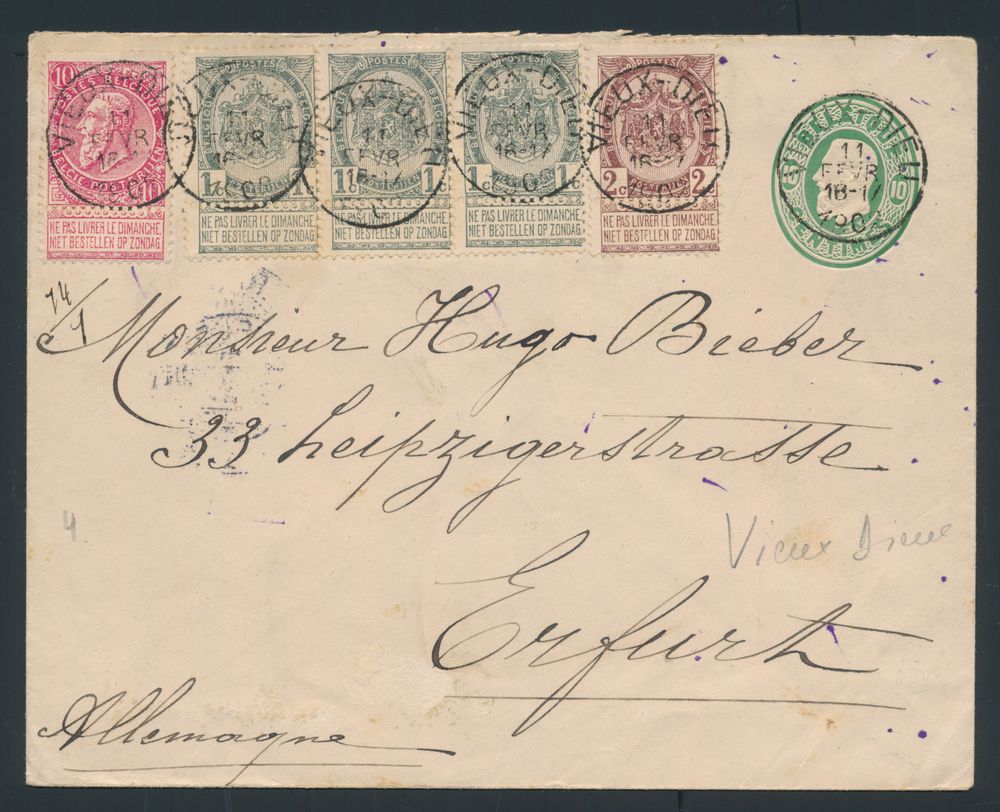 10
POSTES BELGIQUE
BELGIE POSTERIJEN
10 10
NE PAS LIVRER LE DIMANCHE
NIET BESTELLEN OP ZONDAG
POSTES
1 C. 1
NE PAS LIVRER LE DIMANCHE
NIET BESTELLEN OP ZONDAG
POSTES
1 C. 1
NE PAS LIVRER LE DIMANCHE
NIET BESTELLEN OP ZONDAG
POSTES
1 C. 1
NE PAS LIVRER LE DIMANCHE
NIET BESTELLEN OP ZONDAG
POSTES
2 C. 2
NE PAS LIVRER LE DIMANCHE
NIET BESTELLEN OP ZONDAG
VIEUX-DIEU
11
FEVR
16-17
10
CENTIMES
14/1
Monsieur Hugo Bieber
33 Leipzigerstrasse
4
Vieux Dieu
Erfurt
Allemagne